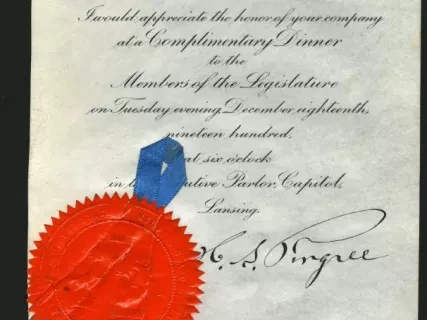 I would appreciate the honor of your company
at a Complimentary Dinner
to the
Members of the Legislature
on Tuesday evening, December eighteenth,
nineteen hundred,
at six o'clock
in utive Parlor, Capitol,
Lansing.
H. S. Pingree